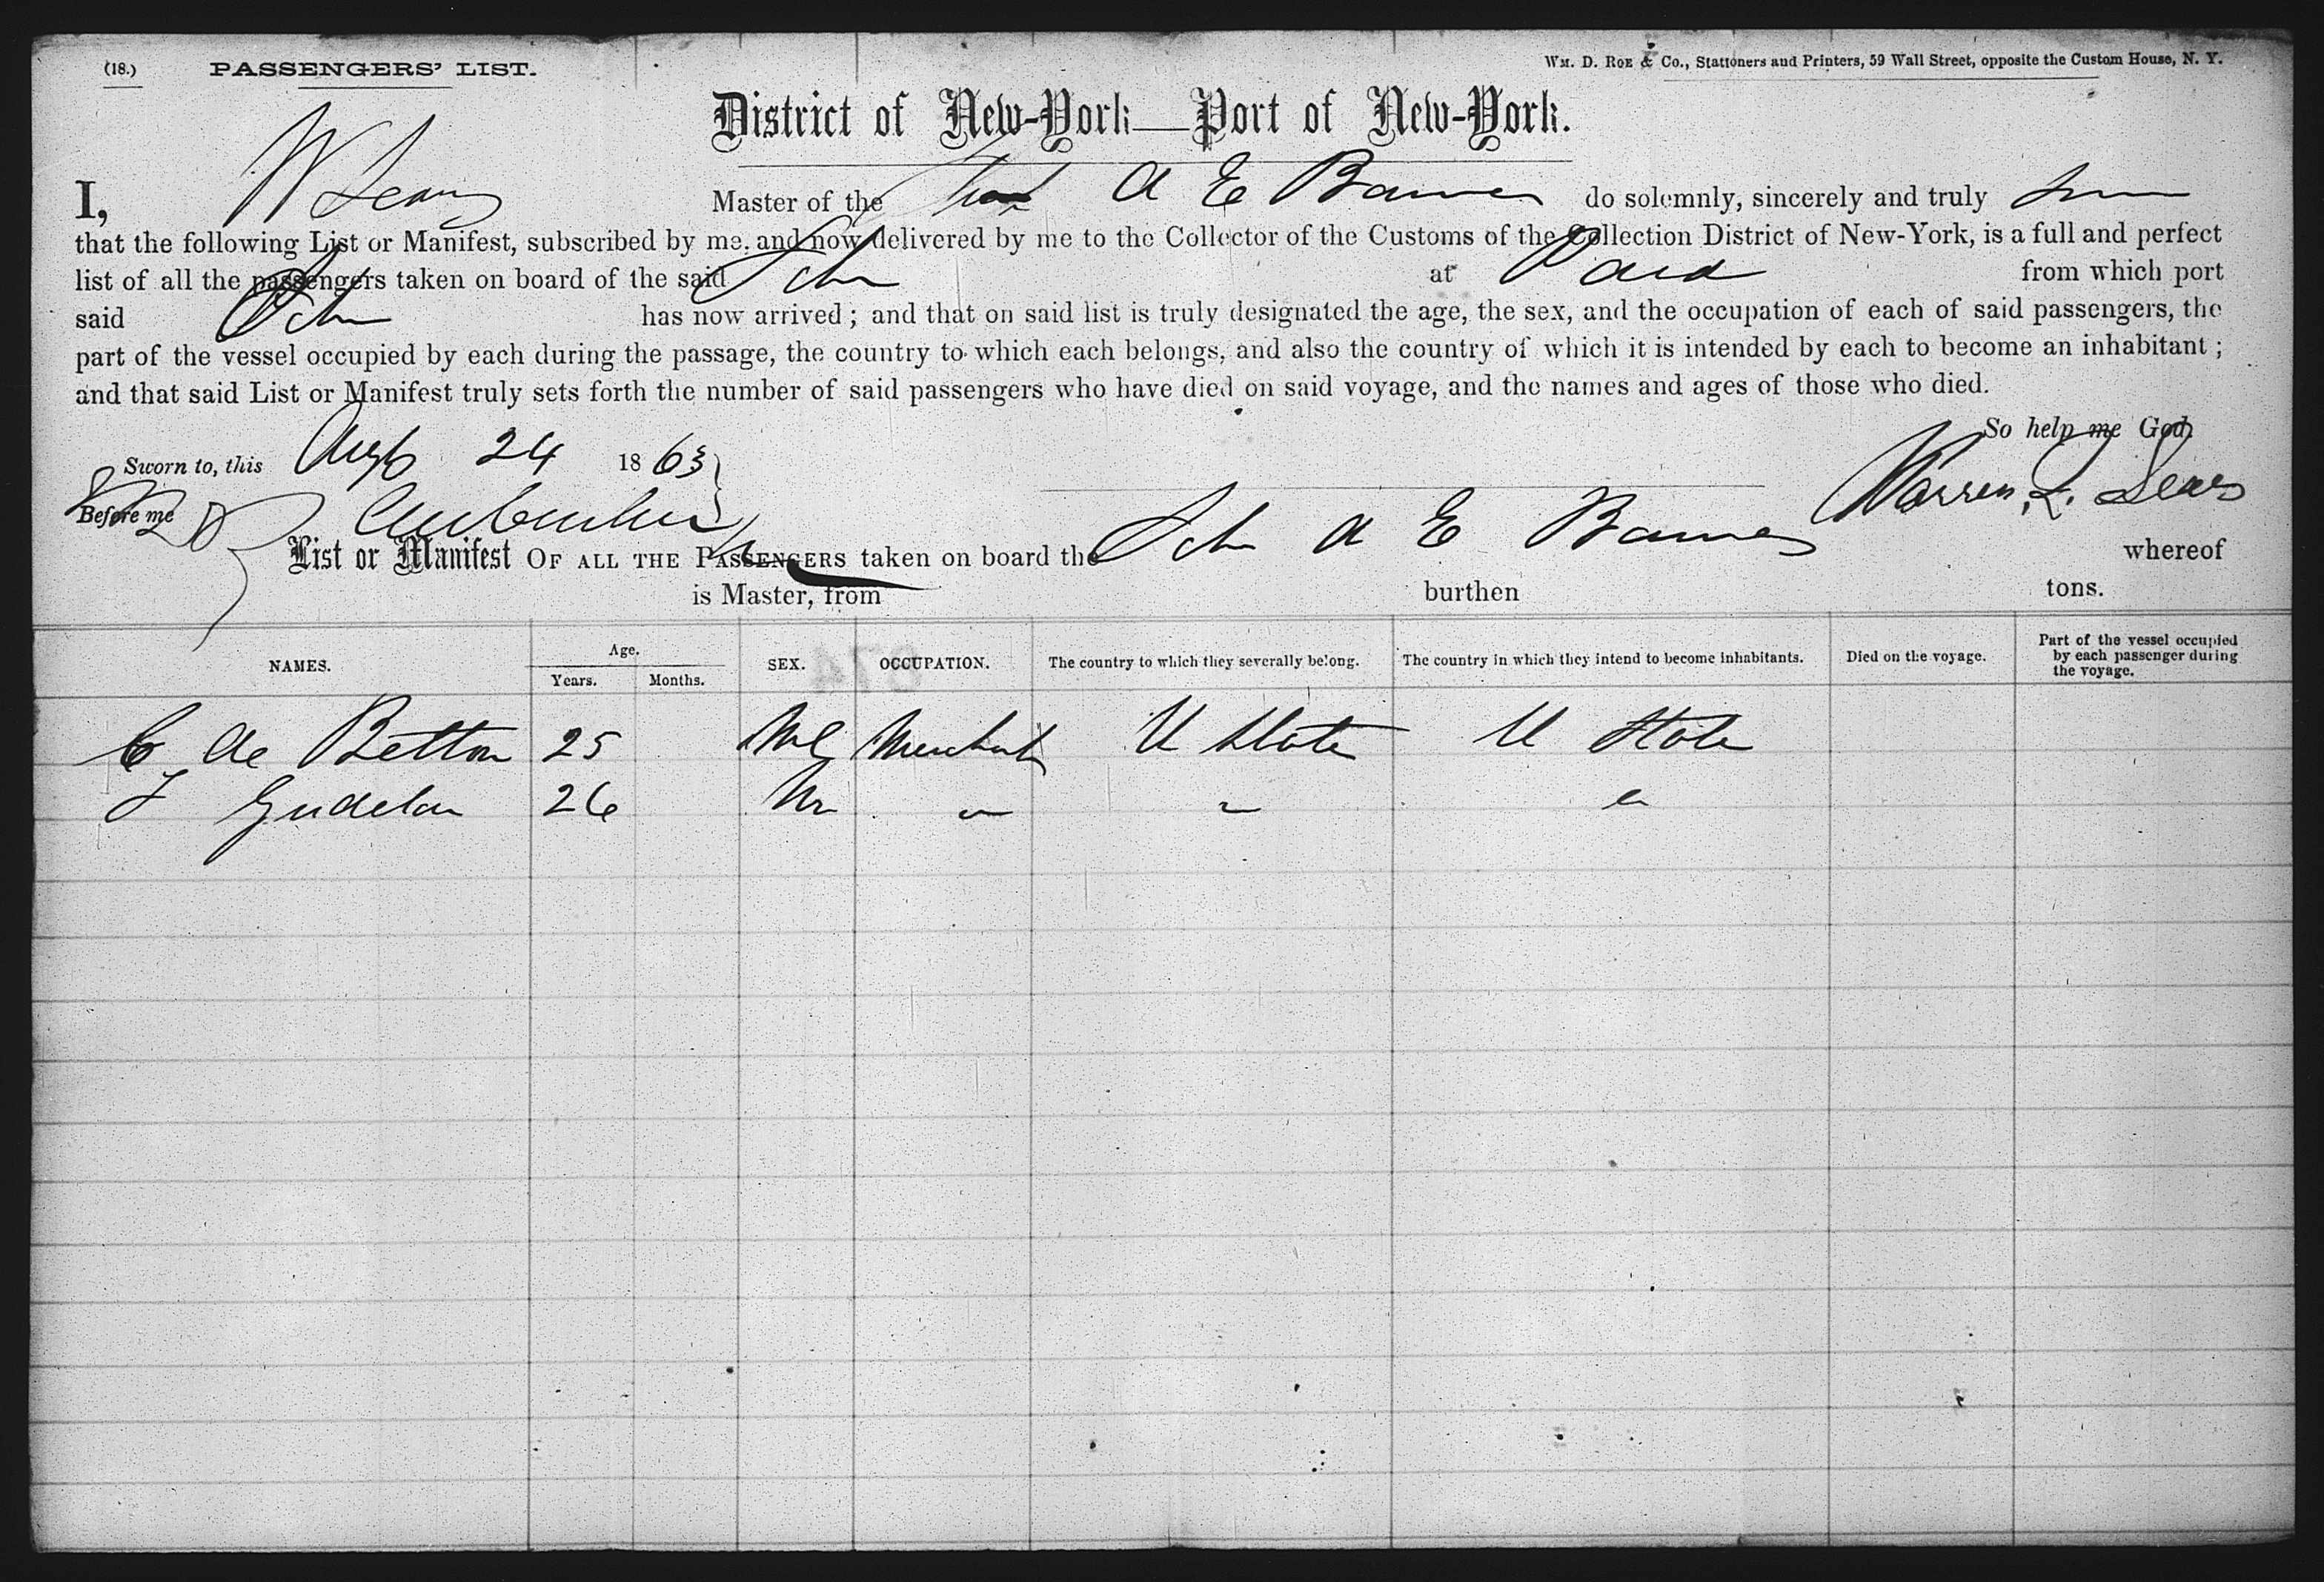 (18.) PASSENGERS' LIST. Wm. D. Roe & Co., Stationers and Printers, 59 Wall Street, opposite the Custom House, N. Y.
District of New-York—Port of New-York.
I, W Sears Master of the A E Barnes do solemnly, sincerely and truly
that the following List or Manifest, subscribed by me, and now delivered by me to the Collector of the Customs of the Collection District of New-York, is a full and perfect
list of all the passengers taken on board of the said Sch at Para from which port
said Sch has now arrived; and that on said list is truly designated the age, the sex, and the occupation of each of said passengers, the
part of the vessel occupied by each during the passage, the country to which each belongs, and also the country of which it is intended by each to become an inhabitant;
and that said List or Manifest truly sets forth the number of said passengers who have died on said voyage, and the names and ages of those who died.
So help me God.
Sworn to, this Aug 24 1863
Before me Warren Sears
List or Manifest OF ALL THE PASSENGERS taken on board the Sch A E Barnes whereof
is Master, from burthen tons.
NAMES. Age. Years. Months. SEX. OCCUPATION. The country to which they severally belong. The country in which they intend to become inhabitants. Died on the voyage. Part of the vessel occupied by each passenger during the voyage.
C de Betton 25 Ml Merchant U State U State
26 M " " "